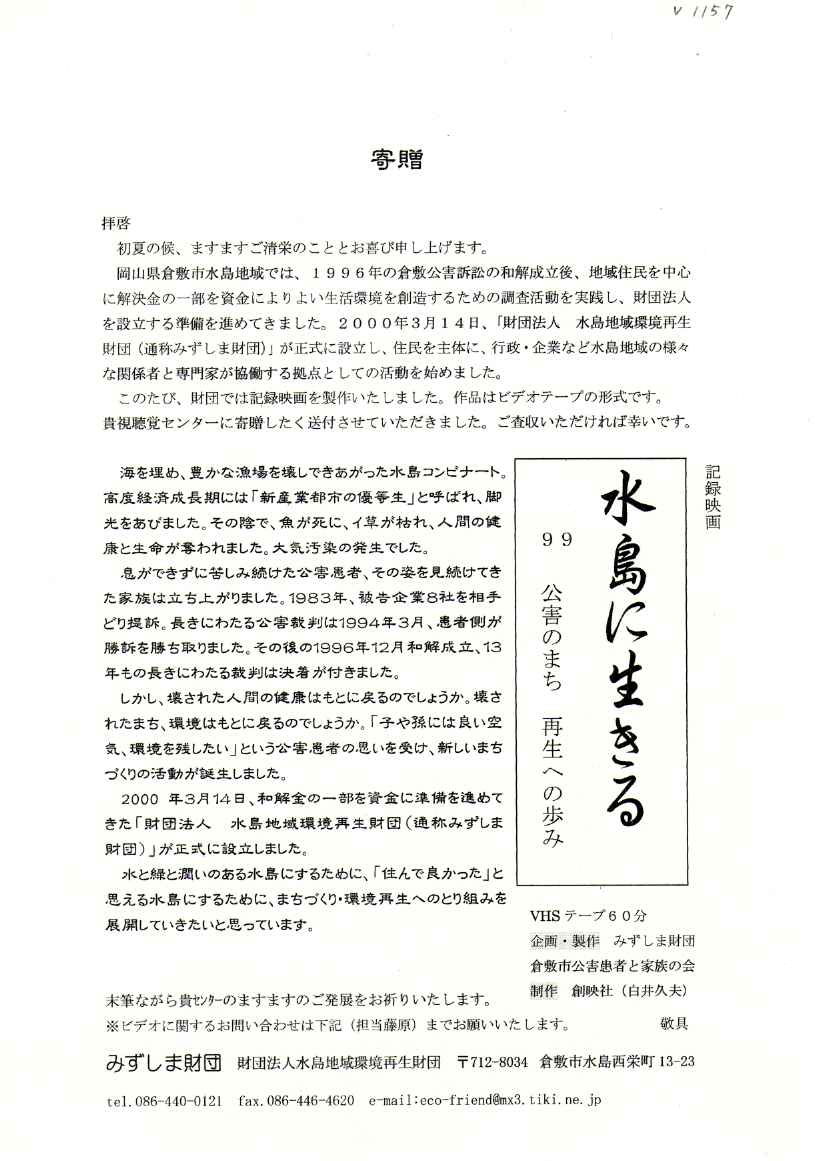 V 1157
寄贈
拝啓
　初夏の候、ますますご清栄のこととお喜び申し上げます。
　岡山県倉敷市水島地域では、１９９６年の倉敷公害訴訟の和解成立後、地域住民を中心
に解決金の一部を資金によりよい生活環境を創造するための調査活動を実践し、財団法人
を設立する準備を進めてきました。２０００年３月１４日、「財団法人　水島地域環境再生
財団（通称みずしま財団）」が正式に設立し、住民を主体に、行政・企業など水島地域の様々
な関係者と専門家が協働する拠点としての活動を始めました。
　このたび、財団では記録映画を製作いたしました。作品はビデオテープの形式です。
貴視聴覚センターに寄贈したく送付させていただきました。ご査収いただければ幸いです。
記録映画
水島に生きる
９９　公害のまち　再生への歩み
　海を埋め、豊かな漁場を壊しできあがった水島コンビナート。
高度経済成長期には「新産業都市の優等生」と呼ばれ、脚
光をあびました。その陰で、魚が死に、イ草が枯れ、人間の健
康と生命が奪われました。大気汚染の発生でした。
　息ができずに苦しみ続けた公害患者、その姿を見続けてき
た家族は立ち上がりました。1983年、被告企業8社を相手
どり提訴。長きにわたる公害裁判は1994年3月、患者側が
勝訴を勝ち取りました。その後の1996年12月和解成立、13
年もの長きにわたる裁判は決着が付きました。
　しかし、壊された人間の健康はもとに戻るのでしょうか。壊さ
れたまち、環境はもとに戻るのでしょうか。「子や孫には良い空
気、環境を残したい」という公害患者の思いを受け、新しいまち
づくりの活動が誕生しました。
　2000 年3月14日、和解金の一部を資金に準備を進めて
きた「財団法人　水島地域環境再生財団（通称みずしま
財団）」が正式に設立しました。
　水と緑と潤いのある水島にするために、「住んで良かった」と
思える水島にするために、まちづくり・環境再生へのとり組みを
展開していきたいと思っています。
VHS テープ６０分
企画・製作　みずしま財団
倉敷市公害患者と家族の会
制作　創映社（白井久夫）
末筆ながら貴センターのますますのご発展をお祈りいたします。
※ビデオに関するお問い合わせは下記（担当藤原）までお願いいたします。　敬具
みずしま財団　財団法人水島地域環境再生財団　〒712-8034　倉敷市水島西栄町 13-23
tel.086-440-0121　fax.086-446-4620　e-mail:eco-friend@mx3.tiki.ne.jp